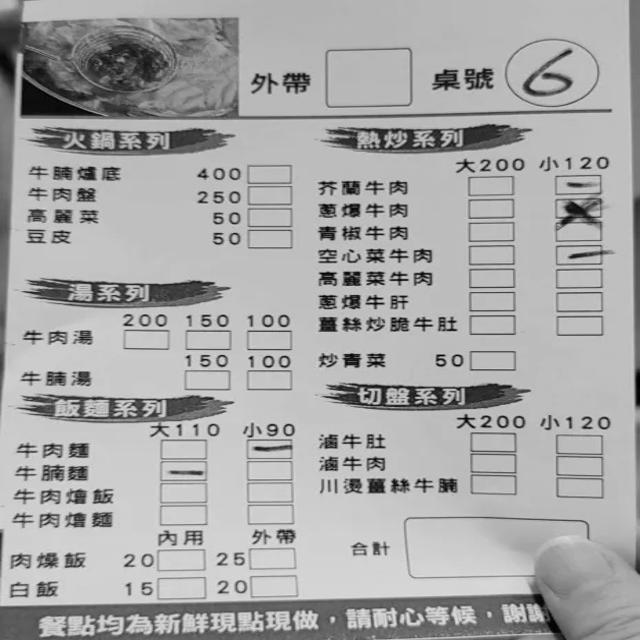 外帶 桌號 6
火鍋系列
牛腩爐底 400
牛肉盤 250
高麗菜 50
豆皮 50
湯系列
200 150 100
牛肉湯
150 100
牛腩湯
飯麵系列
大110 小90
牛肉麵
牛腩麵
牛肉燴飯
牛肉燴麵
內用 外帶
肉燥飯 20 25
白飯 15 20
熱炒系列
大200 小120
芥蘭牛肉
蔥爆牛肉
青椒牛肉
空心菜牛肉
高麗菜牛肉
蔥爆牛肝
薑絲炒脆牛肚
炒青菜 50
切盤系列
大200 小120
滷牛肚
滷牛肉
川燙薑絲牛腩
合計
餐點均為新鮮現點現做，請耐心等候，謝謝